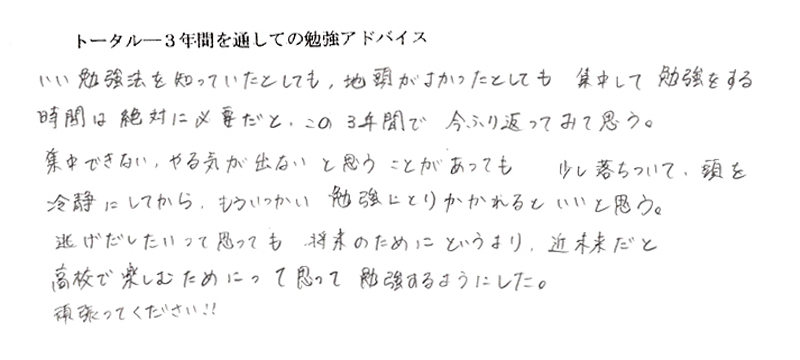 トータル―３年間を通しての勉強アドバイス
いい勉強法を知っていたとしても、地頭がよかったとしても 集中して勉強をする
時間は絶対に必要だと、この3年間で 今ふり返ってみて思う。
集中できない、やる気が出ないと思うことがあっても 少し落ちついて、頭を
冷静にしてから、もういっかい 勉強にとりかかれるといいと思う。
逃げだしたいって思っても 将来のためにというより、近未来だと
高校で楽しむためにって思って 勉強するようにした。
頑張ってください!!